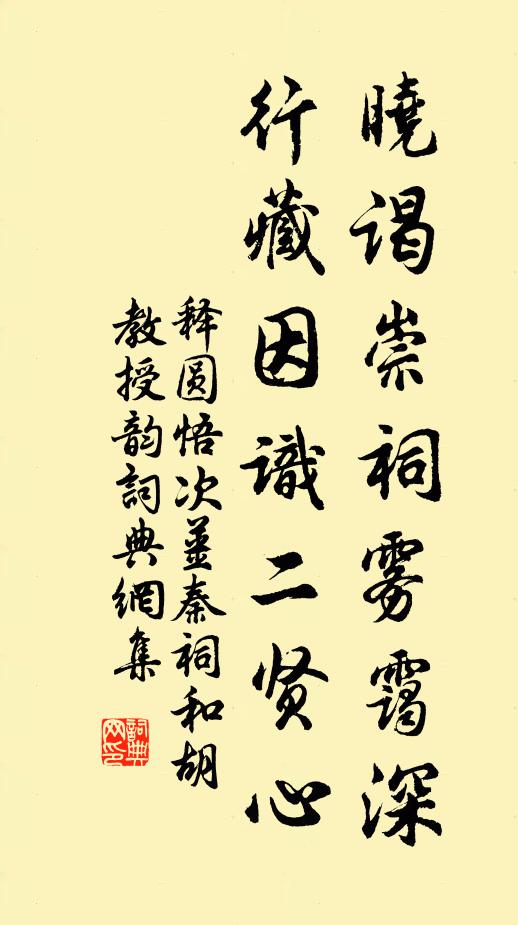 曉谒崇祠雾靄深
行藏因識二贤心
释圆悟次薑秦祠和胡
教授韵詞典網集
詞典網印